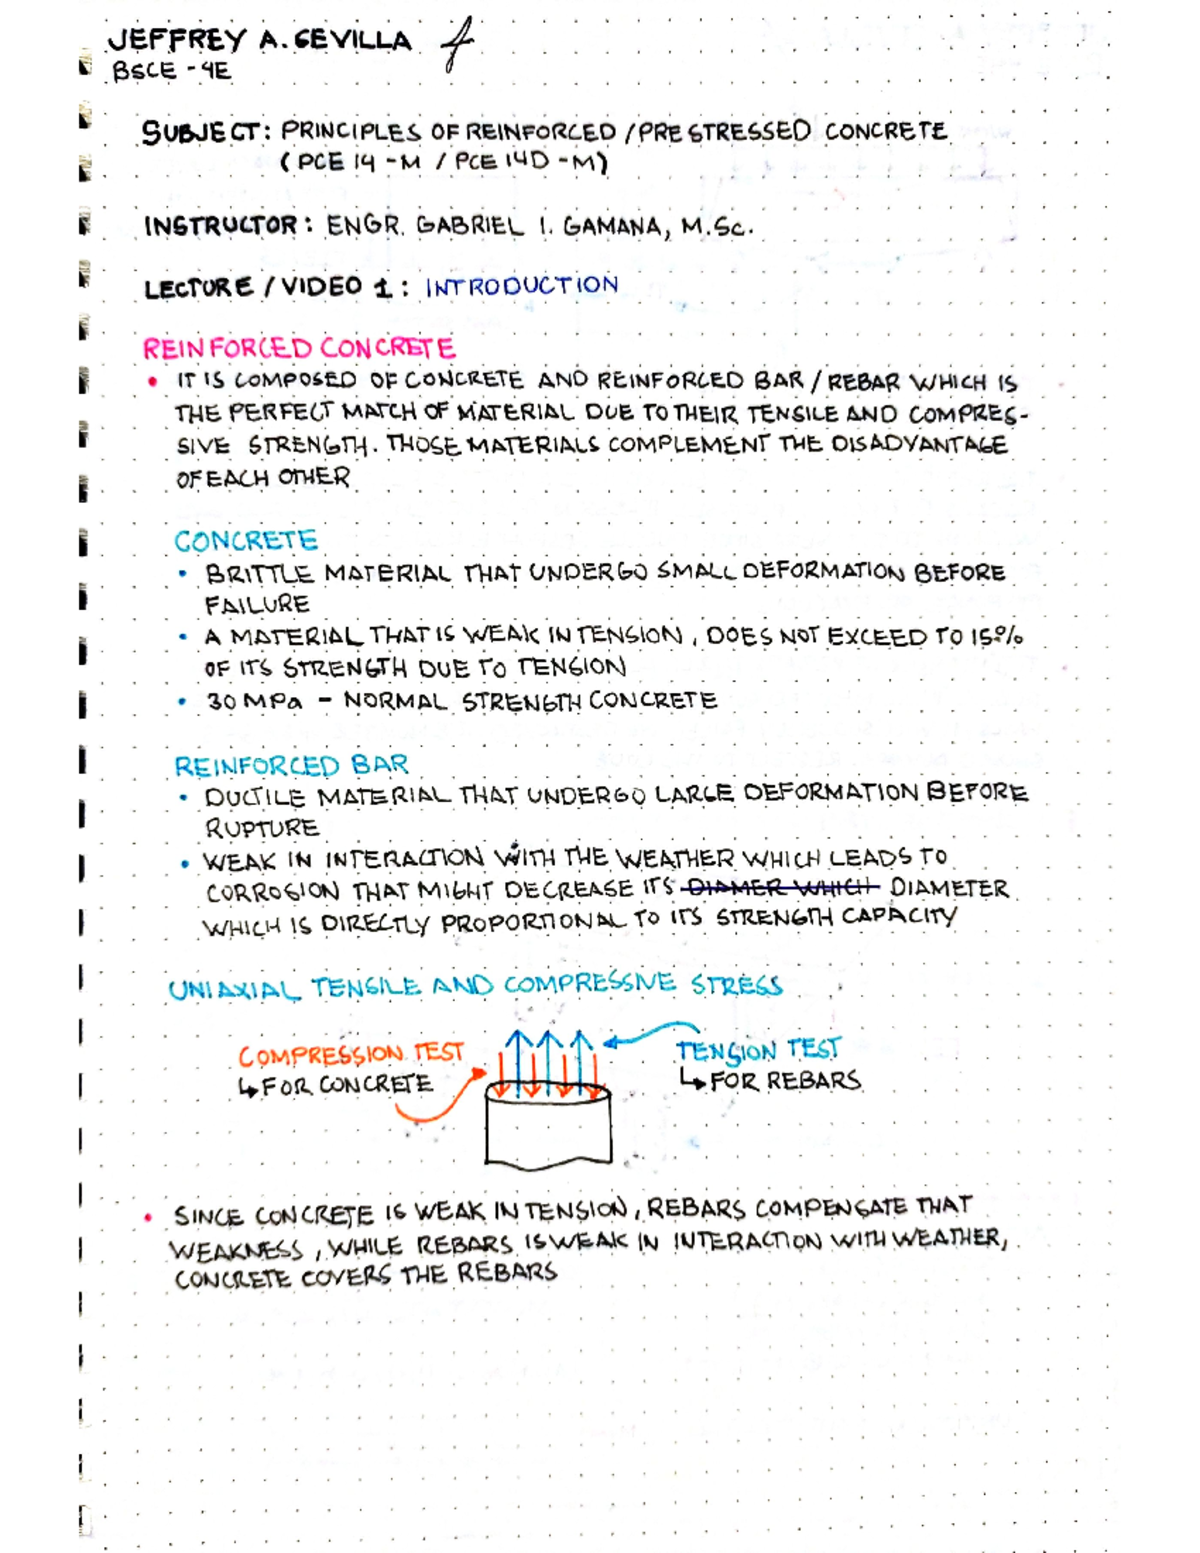 JEFFREY A. SEVILLA
BSCE - 4E
SUBJECT: PRINCIPLES OF REINFORCED / PRESTRESSED CONCRETE
( PCE 14 - M / PCE 14D - M)
INSTRUCTOR: ENGR. GABRIEL I. GAMANA, M.Sc.
LECTURE / VIDEO 1: INTRODUCTION
REINFORCED CONCRETE
• IT IS COMPOSED OF CONCRETE AND REINFORCED BAR / REBAR WHICH IS
THE PERFECT MATCH OF MATERIAL DUE TO THEIR TENSILE AND COMPRES-
SIVE STRENGTH. THOSE MATERIALS COMPLEMENT THE DISADVANTAGE
OF EACH OTHER
CONCRETE
• BRITTLE MATERIAL THAT UNDERGO SMALL DEFORMATION BEFORE
FAILURE
• A MATERIAL THAT IS WEAK IN TENSION, DOES NOT EXCEED TO 15%
OF ITS STRENGTH DUE TO TENSION
• 30 MPa - NORMAL STRENGTH CONCRETE
REINFORCED BAR
• DUCTILE MATERIAL THAT UNDERGO LARGE DEFORMATION BEFORE
RUPTURE
• WEAK IN INTERACTION WITH THE WEATHER WHICH LEADS TO
CORROSION THAT MIGHT DECREASE ITS DIAMER WHICH DIAMETER
WHICH IS DIRECTLY PROPORTIONAL TO ITS STRENGTH CAPACITY
UNIAXIAL TENSILE AND COMPRESSIVE STRESS
COMPRESSION TEST
↳ FOR CONCRETE
TENSION TEST
↳ FOR REBARS
• SINCE CONCRETE IS WEAK IN TENSION, REBARS COMPENSATE THAT
WEAKNESS, WHILE REBARS IS WEAK IN INTERACTION WITH WEATHER,
CONCRETE COVERS THE REBARS